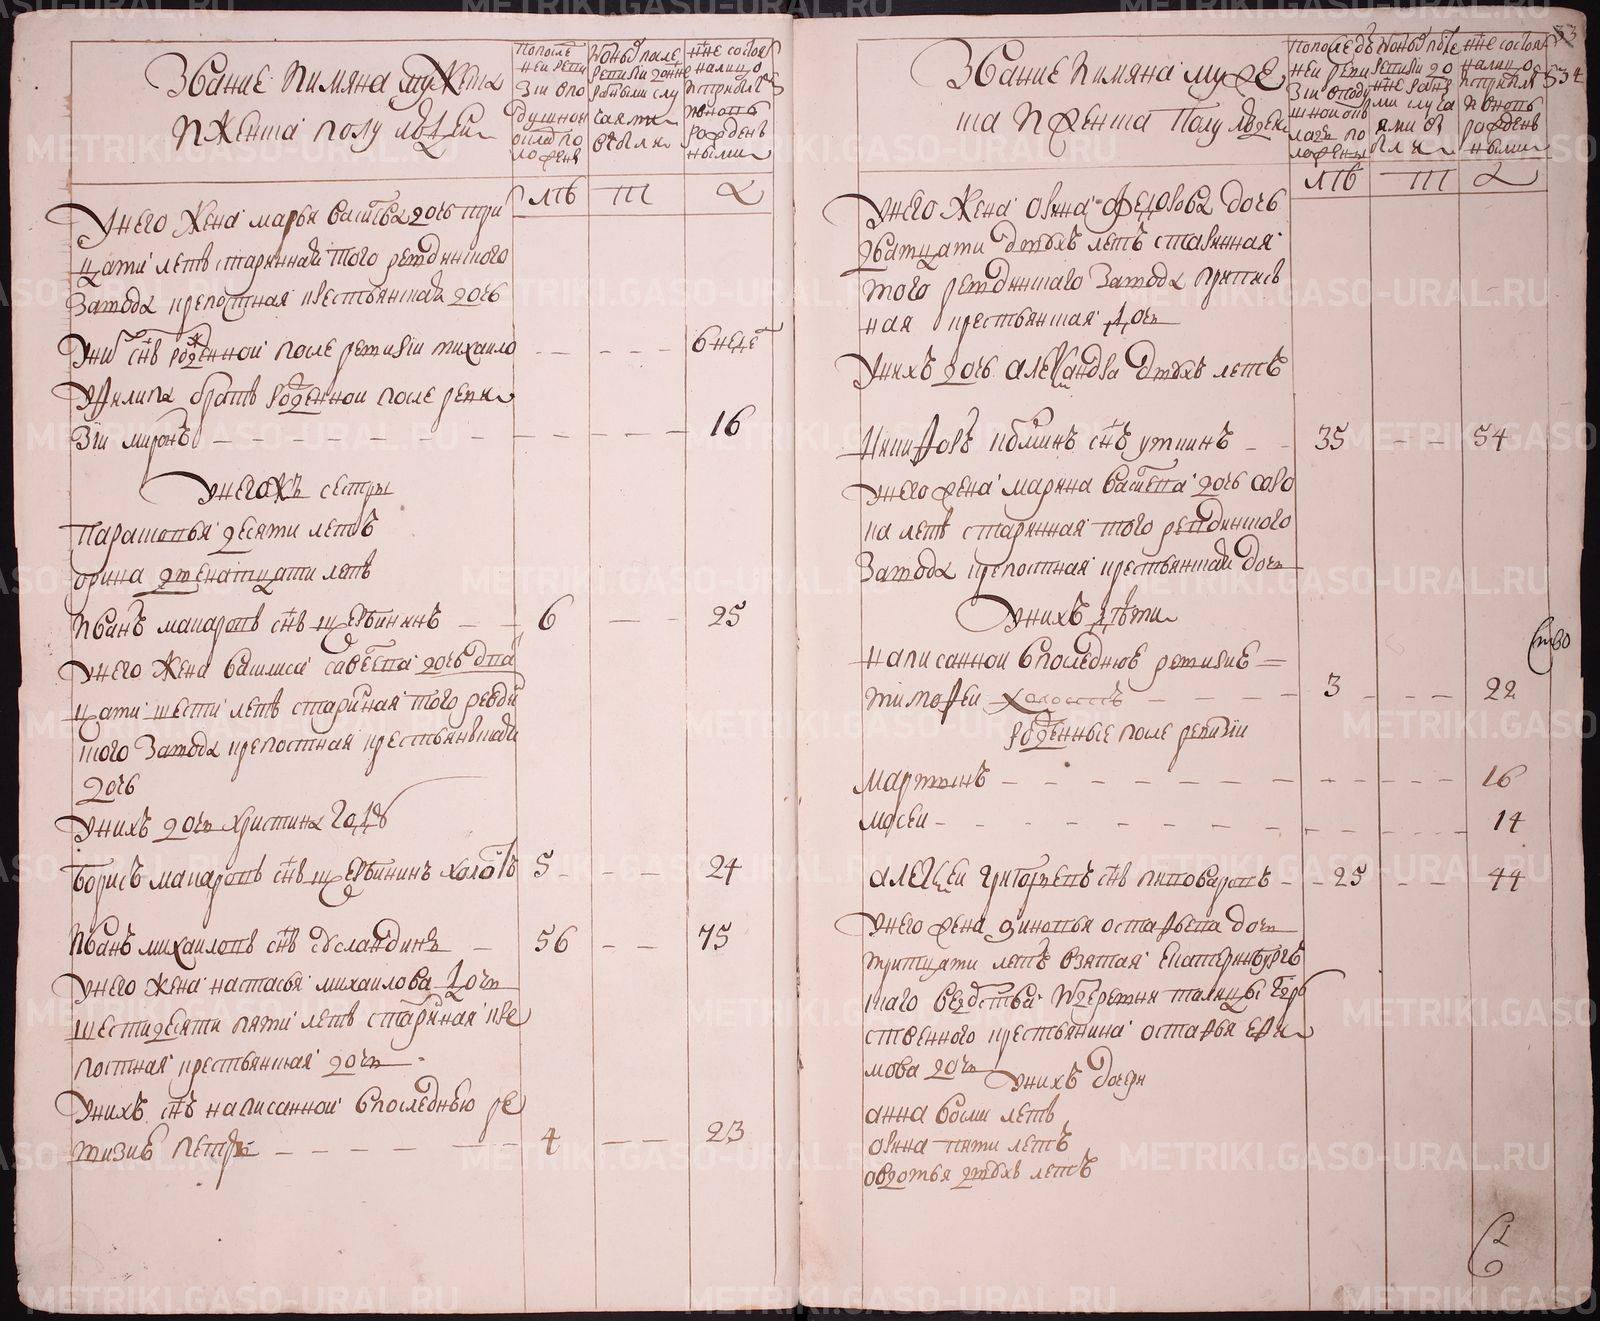 Звание и имяна мужеска
и женска полу людей
По последней ревизии в подушном окладе положены
Из оных после ревизии до ныне разными случаями убыли
Ныне состоят налицо и с прибылыми вновь рожденными
лѣ
У него жена Марья Васильева дочь три
цати летъ старинная того ревдинского
завода крепостная крестьянская дочь
У ни сн̃ъ рожденной после ревизии Михайло
6 недель
У Филипа братъ рожденной после реви
зии Миронъ
16
У него жъ сестры
Парасковья десяти летъ
Орина двенатцати летъ
Иванъ Макаровъ сн̃ъ Щербининъ
6
25
У него жена Василиса Савельева дочь два
цати шести летъ старинная того ревди
нского завода крепостная крестьянская
дочь
У нихъ дочь Христина году
Борисъ Макаровъ сн̃ъ Щербининъ холостъ
5
24
Иванъ Михайловъ сн̃ъ Бусландинъ
56
75
У него жена Настасья Михайлова дочь
шестидесяти пяти летъ старинная кре
постная крестьянская дочь
У нихъ сн̃ъ написанной в последнюю ре
визию Петръ
4
23
534
Звание и имяна муже
ска и женска полу людей
По последней ревизии в подушной окладъ положены
Из оных после ревизии до ныне разными случаями убыли
Ныне состоят налицо и с прибылыми вновь рожденными
лѣ
У него жена Овина Федорова дочь
дватцати двухъ летъ старинная
того ревдинскаго завода крепост
ная крестьянская дочь
У нихъ дочь Александра двухъ летъ
Никифоръ Кузминъ сн̃ъ Уткинъ
35
54
У него жена Марина Васильева дочь соро
ка летъ старинная того ревдинского
завода крепостная крестьянская дочь
У нихъ дѣти
написанной в последнюю ревизию
Тимофей холостъ
3
22
рожденные после ревизии
Мартынъ
16
Мосей
14
Алексей Григорьевъ сн̃ъ Пивоваровъ
25
44
У него жена Зиновья Остафьева дочь
тритцати летъ взятая Екатеринбургъ
скаго ведомства из деревни Талицы государ
ственного крестьянина Остафья Ефи
мова дочь
У нихъ дочери
Анна восми летъ
Овина пяти летъ
Овдотья двухъ летъ
METRIKI.GASO-URAL.RU